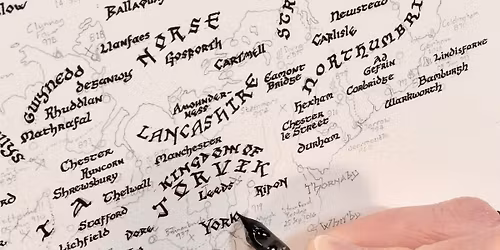 Ballaqu
Newstead
Llanfaes
NORSE
STR
Carlisle
Gosforth
Cartmell
NORTHUMBRI
Gwynedd
Deganwy
Eamont
Bridge
Ad
Gefrin
Lindisfarne
Rhuddlan
Amounder-
ness
Hexham
Corbridge
Bamburgh
Mathrafal
LANCASHIRE
Chester
le Street
Warkworth
Manchester
Durham
Chester
Runcorn
KINGDOM OF
JORVIK
Shrewsbury
Thelwell
Leeds
Ripon
Thornaby
Stafford
Lichfield
Dore
York
Whitby